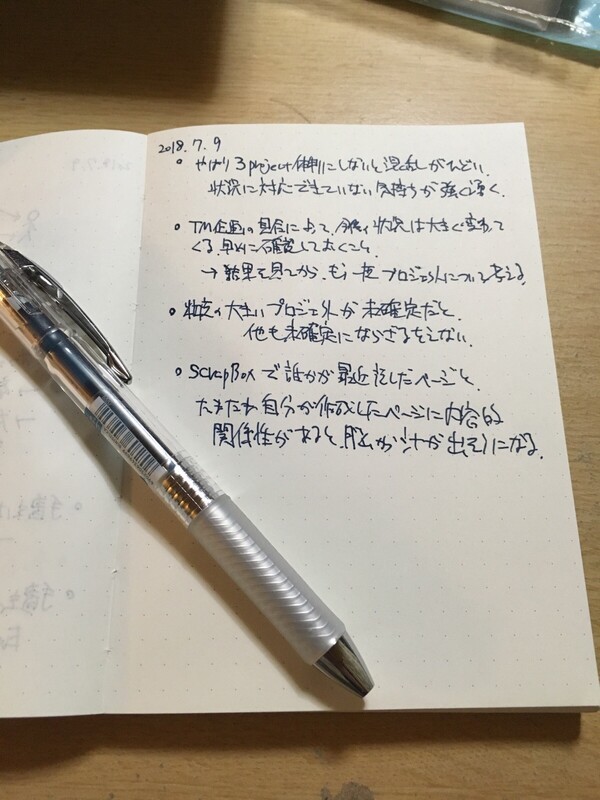 2018.7.9
• やはり3project体制にしないと混乱がひどい.
状況に対応できていない気持ちが強く湧く.
• TM企画の具合によって、今後の状況は大きく変わって
くる. 早めに確認しておくこと.
→ 結果を見てから、もう一度プロジェクトについて考える.
• 粒度の大きいプロジェクトが未確定だと、
他も未確定にならざるをえない.
• ScrapBoxで誰かが最近
したページと、
たまたま自分が作成したページに内容的
関係性があると、脳から汁が出そうになる.